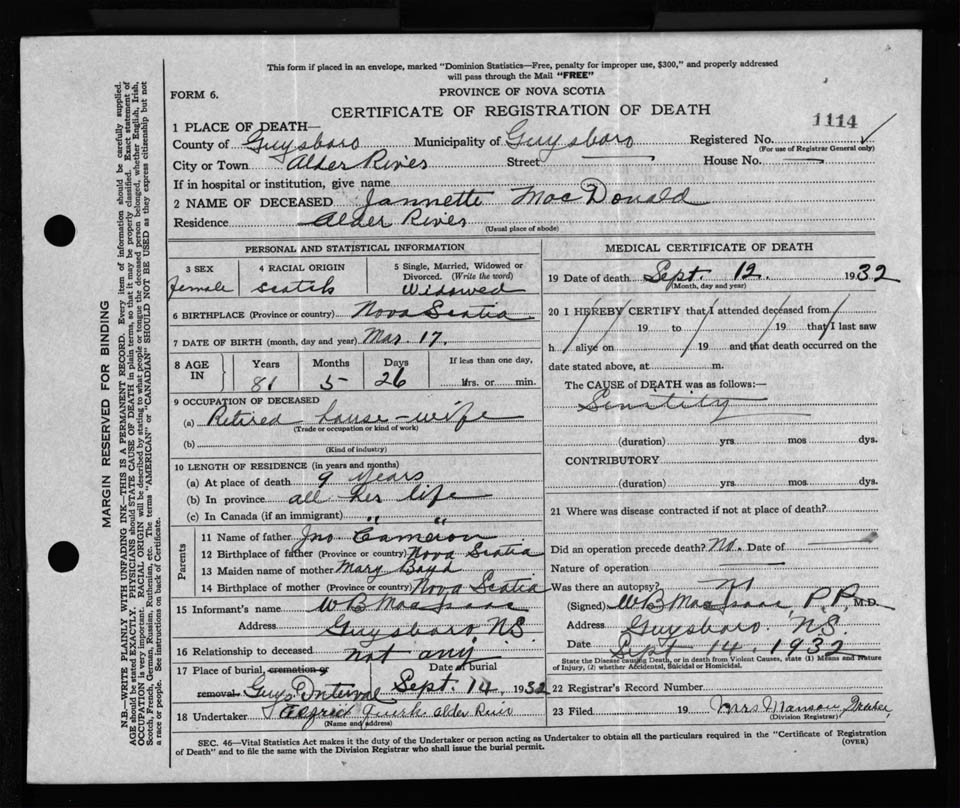 This form if placed in an envelope, marked "Dominion Statistics—Free, penalty for improper use, $300," and properly addressed
will pass through the Mail "FREE"
FORM 6.
PROVINCE OF NOVA SCOTIA
CERTIFICATE OF REGISTRATION OF DEATH
1114
1 PLACE OF DEATH—
County of Guysboro Municipality of Guysboro Registered No.
(For use of Registrar General only)
City or Town Alder River Street — House No. —
If in hospital or institution, give name
2 NAME OF DECEASED Jannette MacDonald
Residence Alder River
(Usual place of abode)
PERSONAL AND STATISTICAL INFORMATION
3 SEX 4 RACIAL ORIGIN 5 Single, Married, Widowed or
Divorced. (Write the word)
female scotch Widowed
6 BIRTHPLACE (Province or country) Nova Scotia
7 DATE OF BIRTH (month, day and year) Mar. 17.
8 AGE IN Years Months Days If less than one day,
81 5 26 Hrs. or min.
9 OCCUPATION OF DECEASED
(a) Retired house-wife
(Trade or occupation or kind of work)
(b)
(Kind of industry)
10 LENGTH OF RESIDENCE (in years and months)
(a) At place of death 9 years
(b) In province all her life
(c) In Canada (if an immigrant) " "
Parents
11 Name of father Jno Cameron
12 Birthplace of father (Province or country) Nova Scotia
13 Maiden name of mother Mary Boyd
14 Birthplace of mother (Province or country) Nova Scotia
15 Informant's name W B MacIsaac
Address Guysboro, N.S.
16 Relationship to deceased not any
17 Place of burial, cremation or Date of burial
removal. Guys Interval Sept. 14, 1932
18 Undertaker Alder River
(Name and address)
MEDICAL CERTIFICATE OF DEATH
19 Date of death Sept. 12. 1932
(Month, day and year)
20 I HEREBY CERTIFY that I attended deceased from
19 to 19 that I last saw
h alive on 19 and that death occurred on the
date stated above, at m.
The CAUSE of DEATH was as follows:—
Senility
(duration) yrs. mos. dys.
CONTRIBUTORY
(duration) yrs. mos. dys.
21 Where was disease contracted if not at place of death?
Did an operation precede death? No. Date of —
Nature of operation —
Was there an autopsy?
(Signed) W B MacIsaac, P.P. M.D.
Address Guysboro. N.S.
Date Sept 14. 1932
State the Disease causing Death, or in death from Violent Causes, state (1) Means and Nature
of Injury, (2) whether Accidental, Suicidal or Homicidal.
22 Registrar's Record Number
23 Filed 19 Mrs
(Division Registrar)
SEC. 46—Vital Statistics Act makes it the duty of the Undertaker or person acting as Undertaker to obtain all the particulars required in the "Certificate of Registration
of Death" and to file the same with the Division Registrar who shall issue the burial permit. (OVER)
MARGIN RESERVED FOR BINDING
N.B.—WRITE PLAINLY WITH UNFADING INK—THIS IS A PERMANENT RECORD. Every item of information should be carefully supplied.
AGE should be stated EXACTLY. PHYSICIANS should STATE CAUSE OF DEATH in plain terms, so that it may be properly classified. Exact statement of
OCCUPATION is very important. RACIAL ORIGIN will be described by stating to what people or tongue the deceased person belonged, whether English, Irish,
Scotch, French, German, Russian, Ruthenian, etc. The terms "AMERICAN" or "CANADIAN" SHOULD NOT BE USED as they express citizenship but not
a race or people. See instructions on back of Certificate.